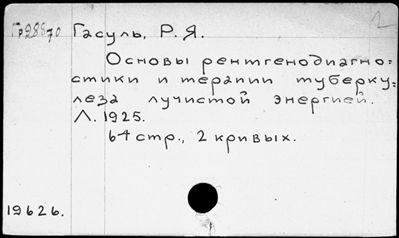 Гасуль, Р. Я.
Основы рентгенодиагно=
стики и терапии туберку=
леза лучистой энергией.
Л. 1925.
64 стр., 2 кривых.
19626.